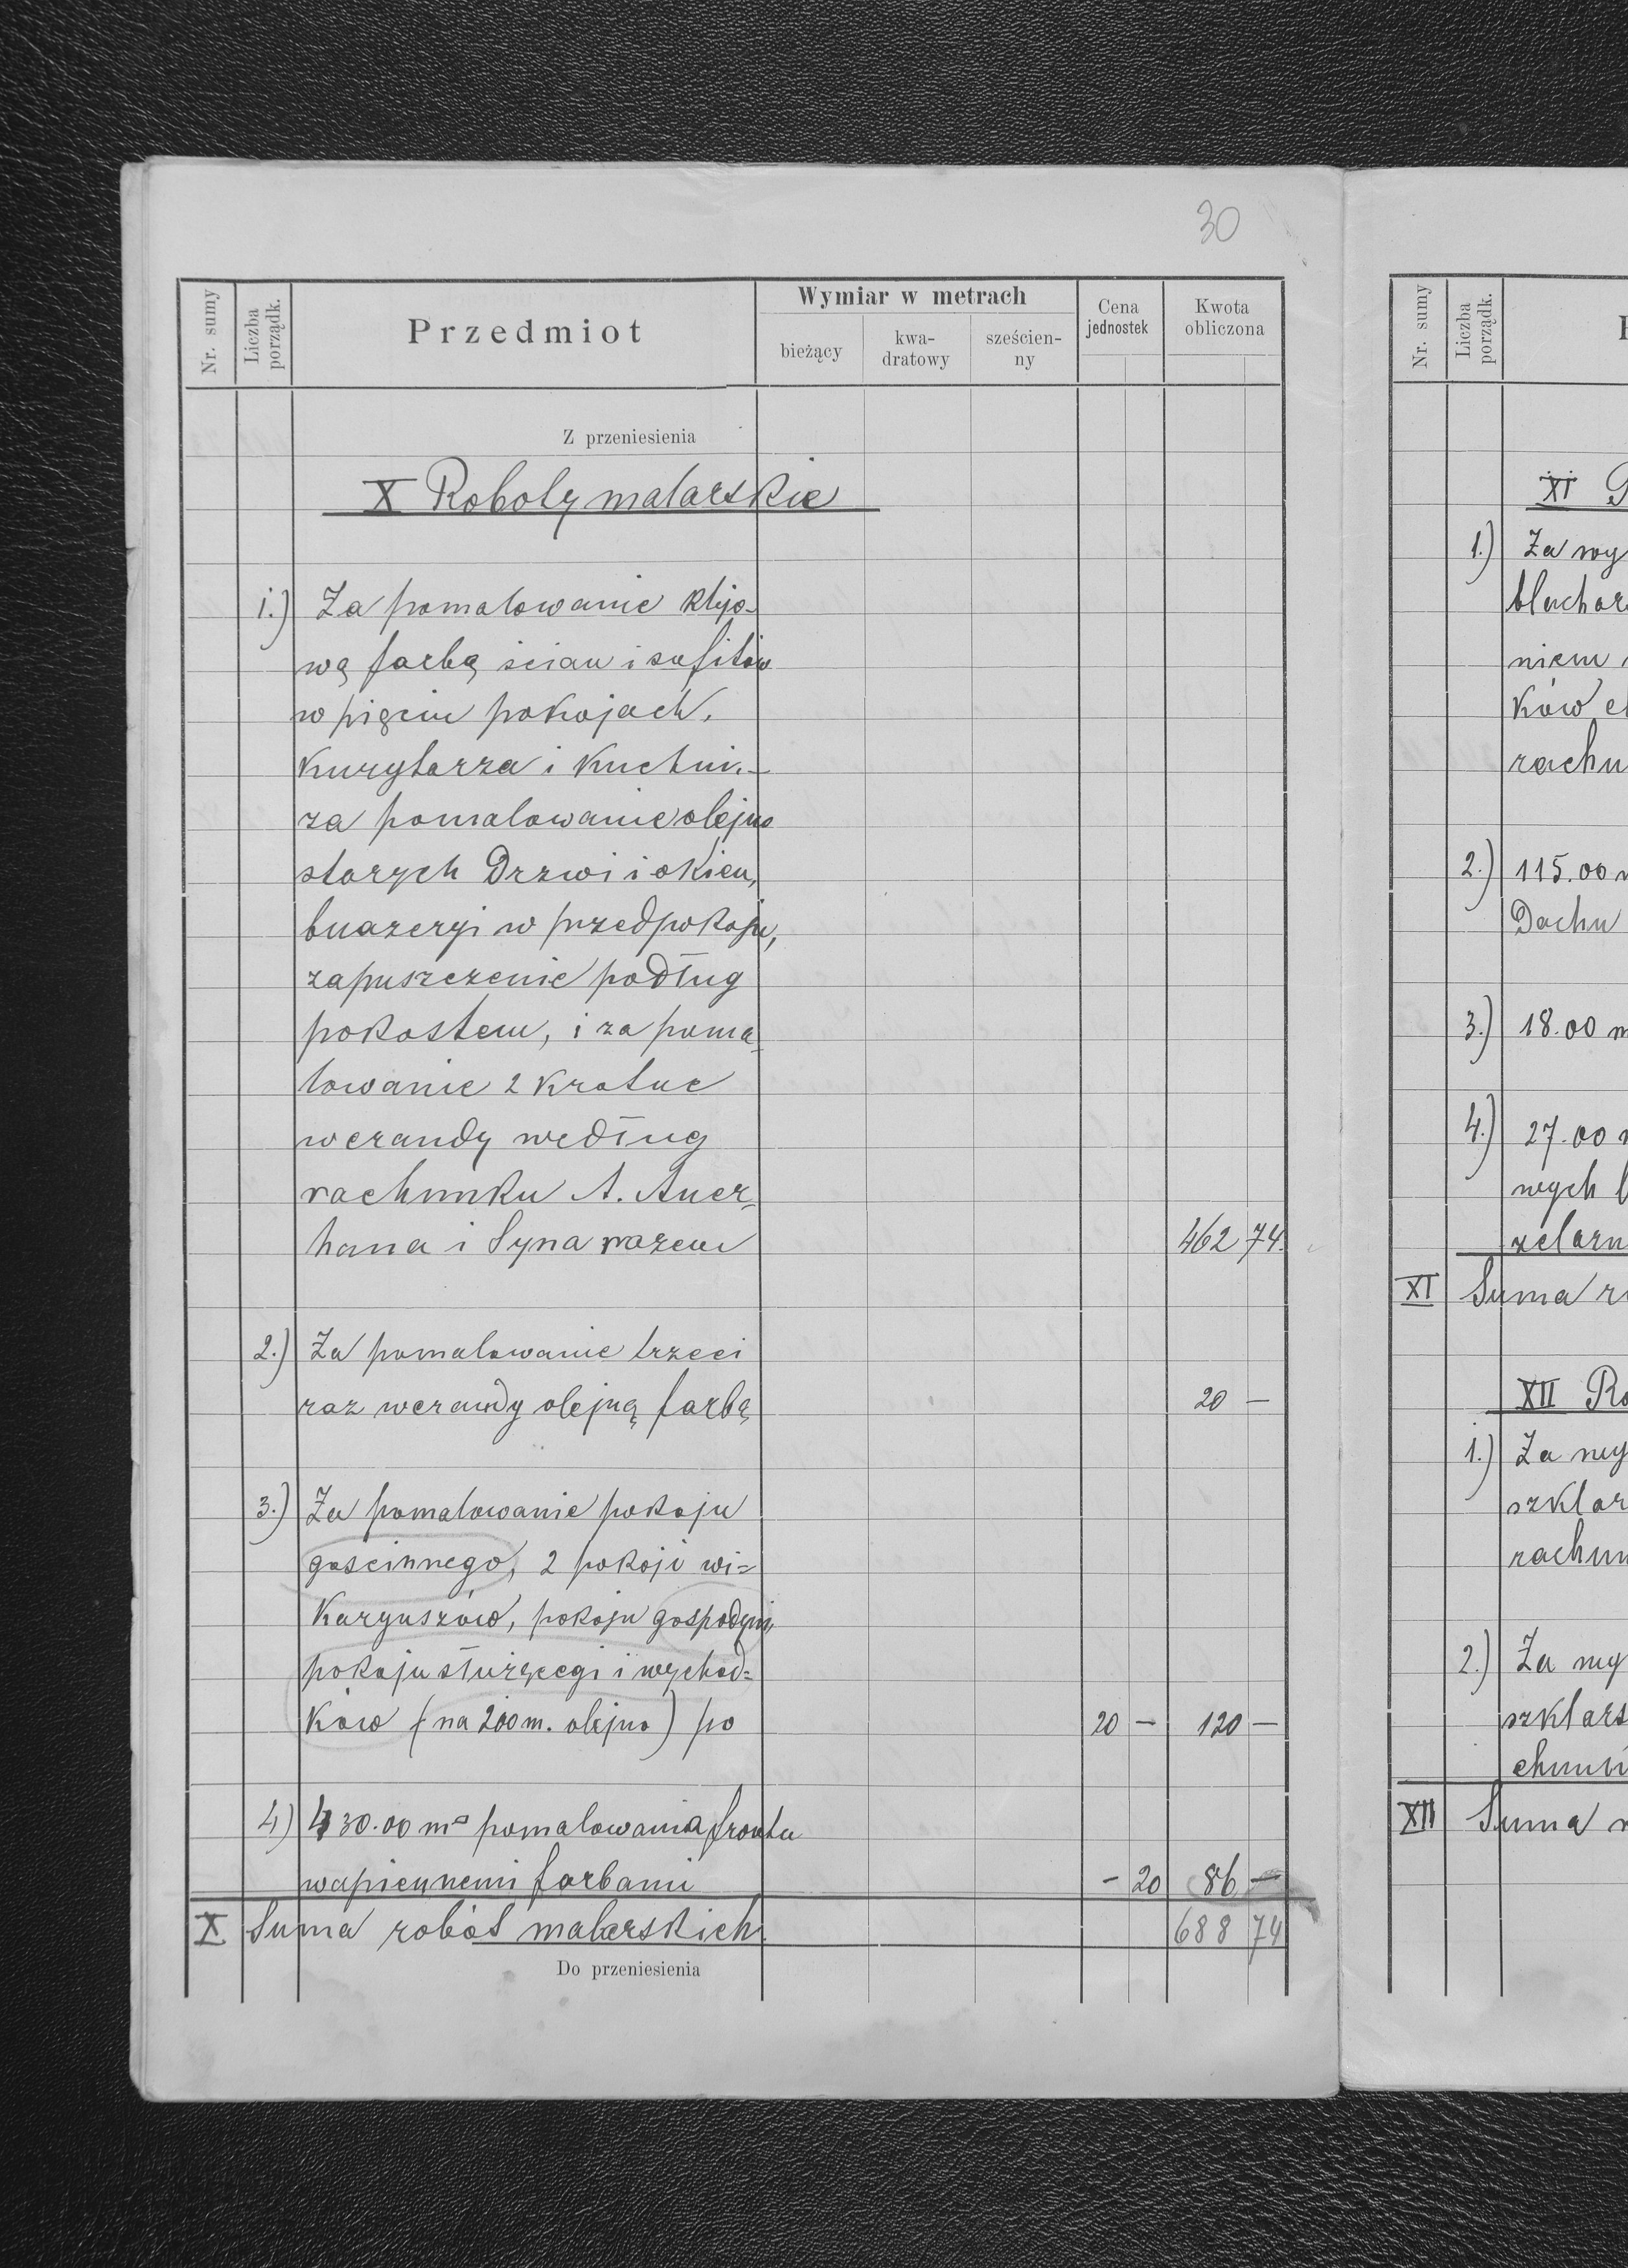 30
Nr. sumy
Liczba porządk.
Przedmiot
Wymiar w metrach
bieżący
kwa-
dratowy
sześcien-
ny
Cena
jednostek
Kwota
obliczona
Z przeniesienia
X Roboty malarskie
1.) Za pomalowanie klijo-
wą farbą ścian i sufitów
w pięciu pokojach,
kurytarza i kuchni. –
za pomalowanie olejno
starych drzwi i okien,
buazeryi w przedpokoju,
zapuszczenie podług
pokostem, i za poma-
lowanie 2 kratne
werandy według
rachunku A. Auer-
hana i Syna razem 462 74.
2.) Za pomalowanie trzeci
raz werandy olejną farbą 20 —
3.) Za pomalowanie pokoju
gościnnego, 2 pokoji wi=
karyuszów, pokoju gospodyni,
pokoju służącegi i wychod=
ków (na 200 m. olejno) po 20 — 120 —
4) 430.00 m² pomalowania frontu
wapiennemi farbami - 20 86 —
X Suma robót malarskich 688 74
Do przeniesienia
Nr. sumy
Liczba porządk.
P
XI
1.) Za wy
blachar
niem
ków
rachu
2.) 115.00
Dachu
3.) 18.00 m
4.) 27.00
wych
żelazn
XI Suma r
XII Ro
1.) Za wy
szklar
rachun
2.) Za wy
szklars
chunk
XII Suma